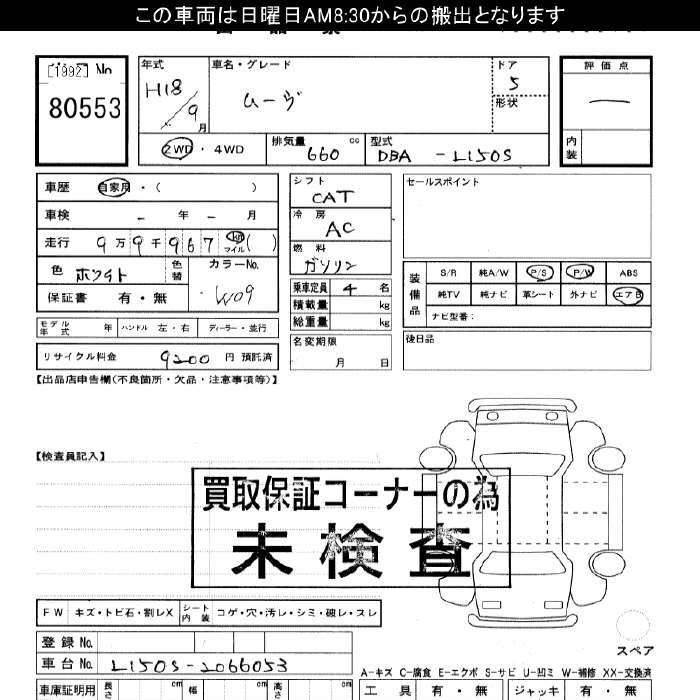 この車両は日曜日AM8:30からの搬出となります
[1992] No
80553
年式
H18/9月
車名・グレード
ムーヴ
ドア
5
形状
評価点
―
内装
2WD ・ 4WD
排気量
660 cc
型式
DBA - L150S
車歴 自家用・( )
車検 - 年 - 月
走行 9万9千967 km マイル ( )
色 ホワイト
色替
カラーNo.
W09
保証書 有・無
シフト
CAT
冷房
AC
燃料
ガソリン
乗車定員 4 名
積載量 kg
総重量 kg
名変期限
月 日
セールスポイント
装備品
S/R 純A/W P/S P/W ABS
純TV 純ナビ 革シート 外ナビ エアB
ナビ型番:
後日品
モデル年式 年 ハンドル 左・右 ディーラー・並行
リサイクル料金 9200 円 預託済
【出品店申告欄(不良箇所・欠品・注意事項等)】
【検査員記入】
買取保証コーナーの為
未検査
FW キズ・トビ石・割レX シート内装 コゲ・穴・汚レ・シミ・破レ・スレ
登録 No.
車台 No. L150S-2066053
スペア
A-キズ C-腐食 E-エクボ S-サビ U-凹ミ W-補修 XX-交換済
車庫証明用 長さ cm 幅 cm 高さ cm
工具 有・無 ジャッキ 有・無